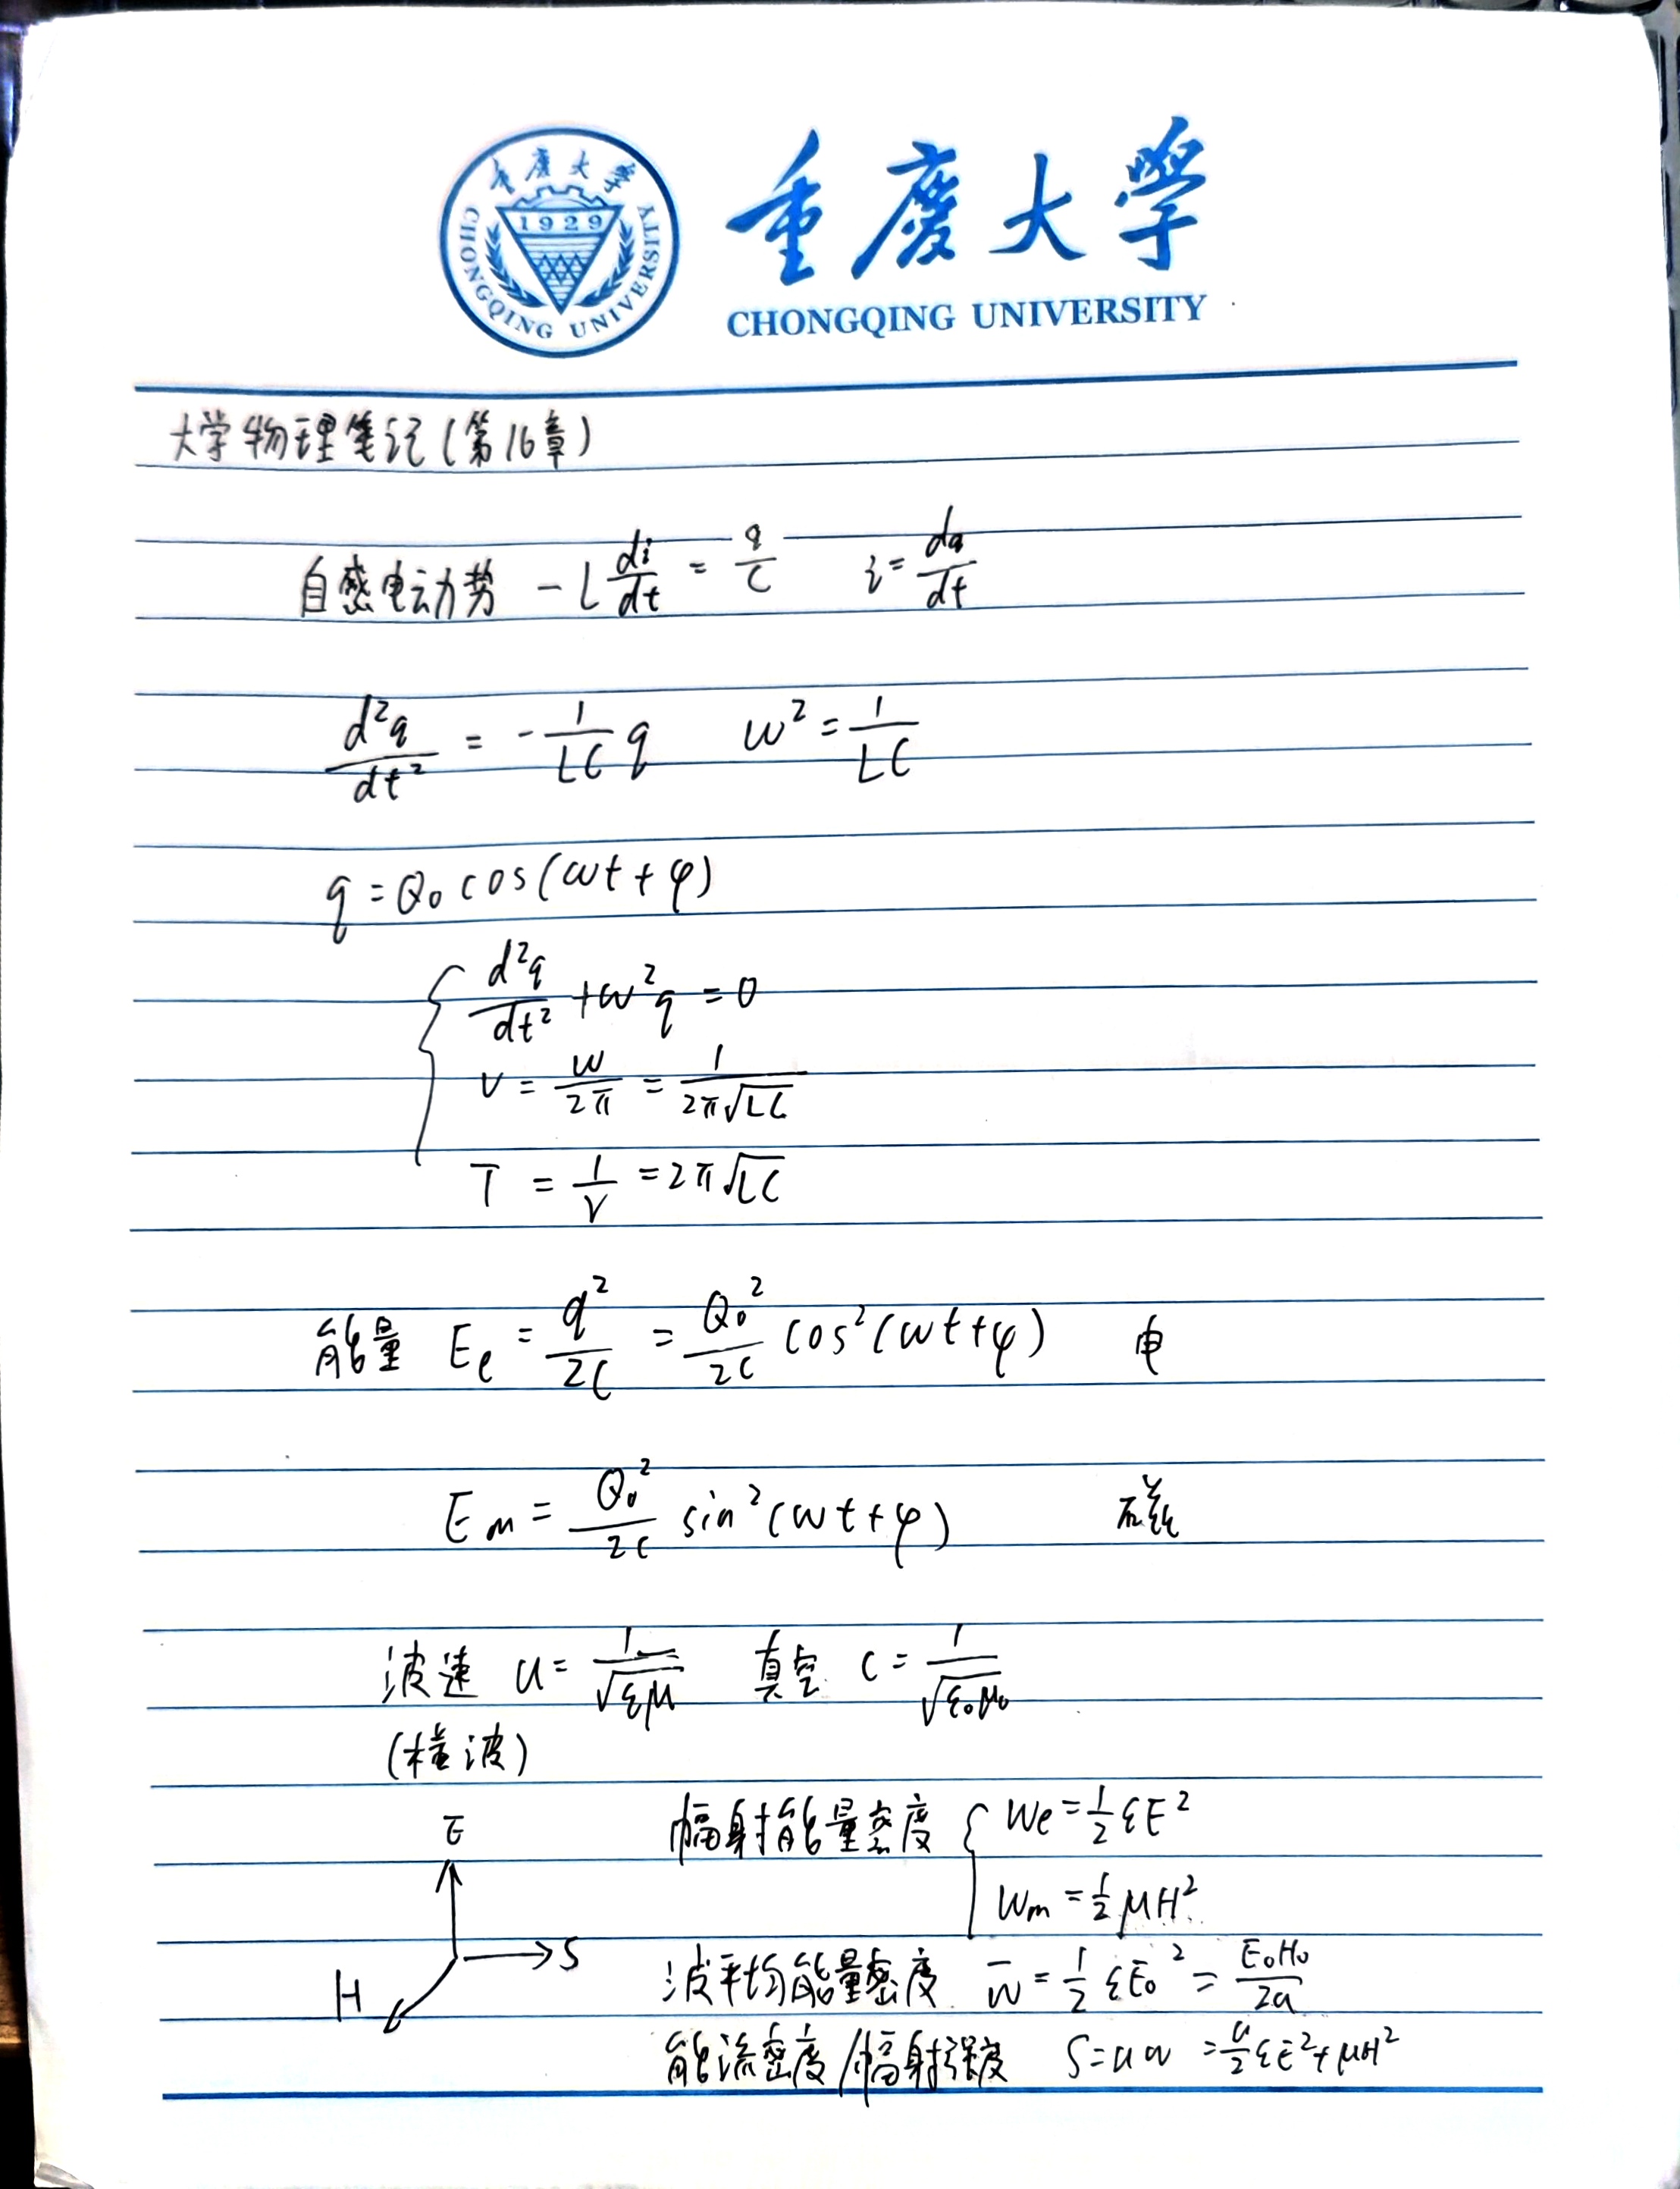 重慶大學
1929
CHONGQING UNIVERSITY
重慶大學
CHONGQING UNIVERSITY
大学物理笔记(第16章)
自感电动势 -L di/dt = q/C i = dq/dt
d²q/dt² = - 1/LC q ω² = 1/LC
q = Q₀ cos(ωt + φ)
d²q/dt² + ω²q = 0
ν = ω/2π = 1/2π√LC
T = 1/ν = 2π√LC
能量 Ee = q²/2C = Q₀²/2C cos²(ωt+φ) 电
Em = Q₀²/2C sin²(ωt+φ) 磁
波速 u = 1/√εμ 真空 C = 1/√ε₀μ₀
(横波)
E
H
S
幅射能量密度 { We = ½ εE²
Wm = ½ μH²
波平均能量密度 w̄ = ½ εE₀² = E₀H₀/2u
能流密度/幅射强度 S = uw = u/2 εE² + μH²